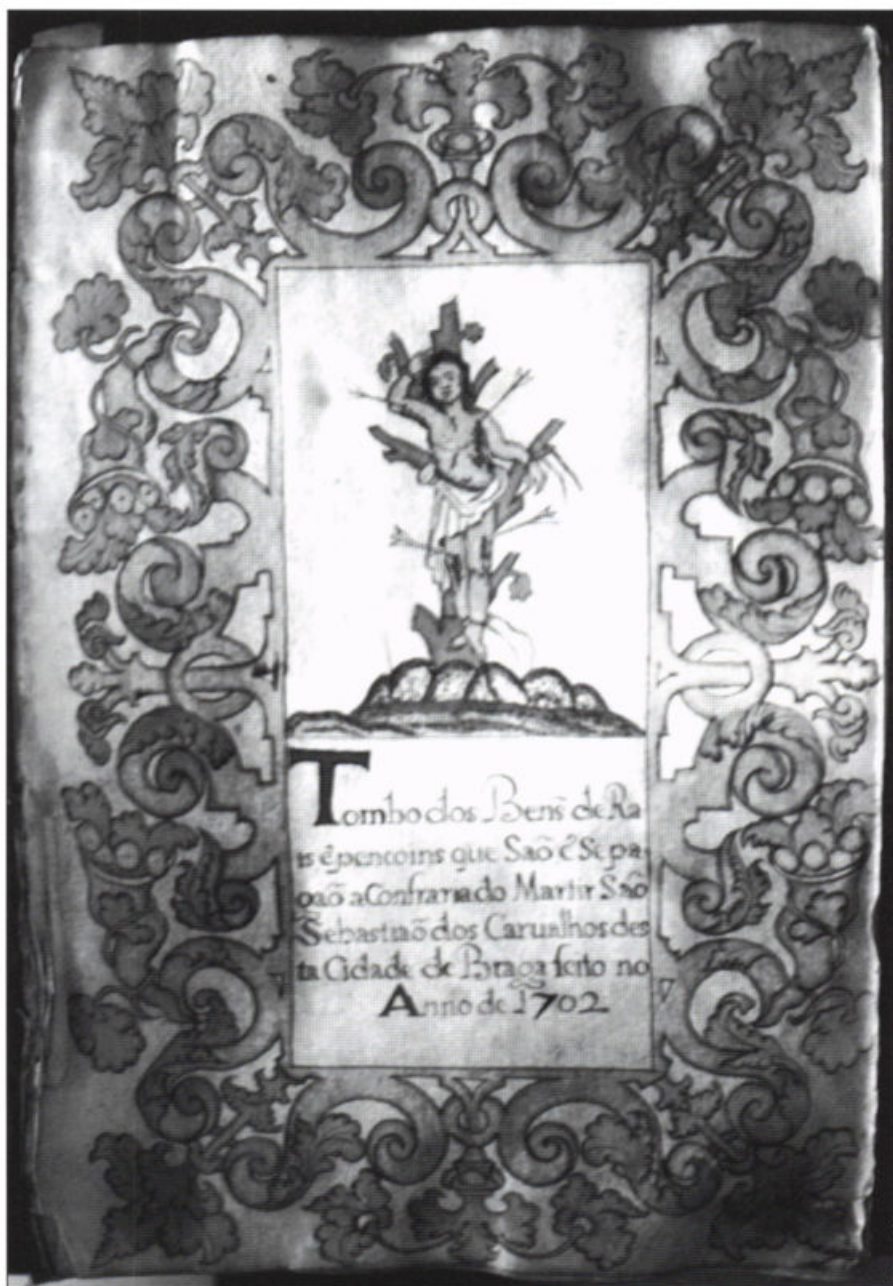 Tombo dos Bens de Ra
is e pencoins que Saõ e Se pa
gaõ a Confraria do Martir Saõ
Sebastiaõ dos Carualhos des
ta Cidade de Braga feito no
Anno de 1702